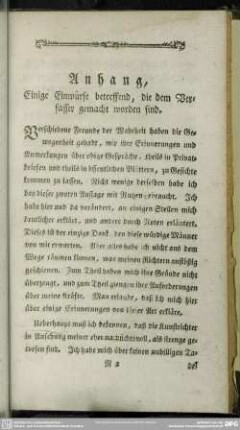 Anhang,
Einige Einwürfe betreffend, die dem Ver-
fasser gemacht worden sind.
Verschiedene Freunde der Wahrheit haben die Ge-
wogenheit gehabt, mir ihre Erinnerungen und
Anmerkungen über obige Gespräche, theils in Privat-
briefen und theils in öffentlichen Blättern, zu Gesichte
kommen zu lassen. Nicht wenige derselben habe ich
bey dieser zweyten Auflage mit Nutzen gebraucht. Ich
habe hier und da verändert, an einigen Stellen mich
deutlicher erklärt, und andere durch Noten erläutert.
Dieses ist der einzige Dank, den diese würdige Männer
von mir erwarten. Aber alles habe ich nicht aus dem
Wege räumen können, was meinen Richtern anstößig
geschienen. Zum Theil haben mich ihre Gründe nicht
überzeugt, und zum Theil giengen ihre Anforderungen
über meine Kräfte. Man erlaube, daß ich mich hier
über einige Erinnerungen von dieser Art erkläre.
Ueberhaupt muß ich bekennen, daß die Kunstrichter
in Ansehung meiner eher nachsichtsvoll, als strenge ge-
wesen sind. Ich habe mich über keinen unbilligen Ta-
del